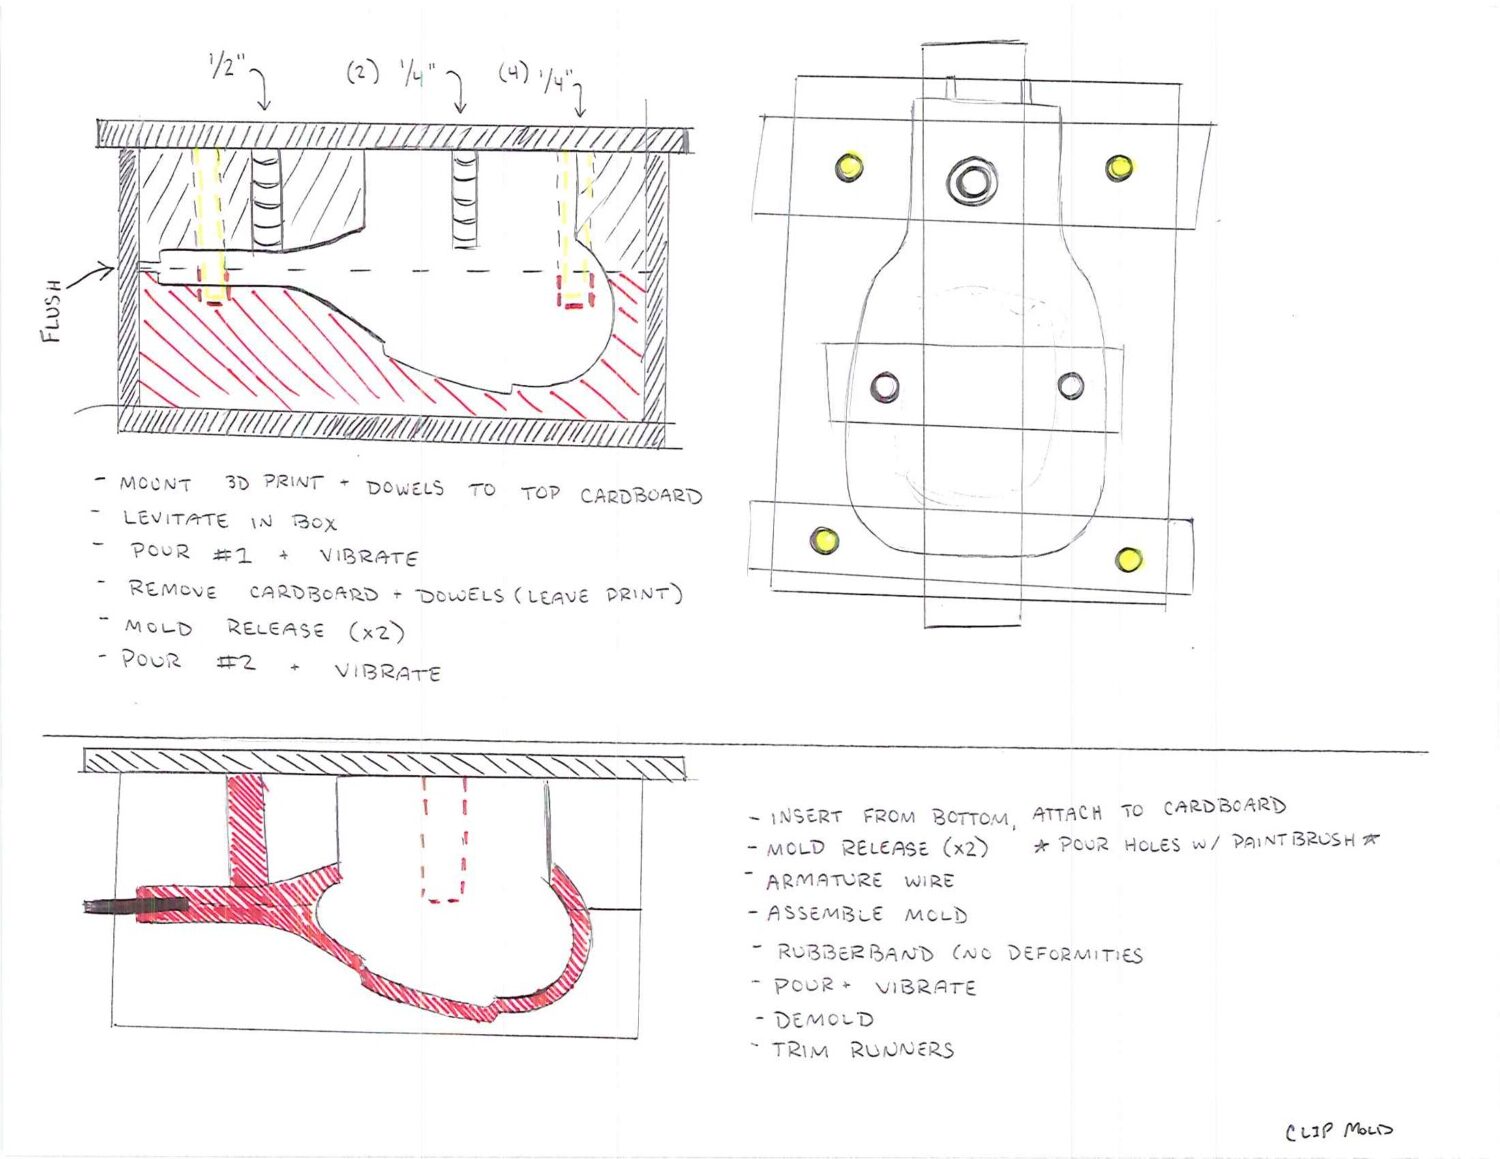 1/2" (2) 1/4" (4) 1/4"
FLUSH
- MOUNT 3D PRINT + DOWELS TO TOP CARDBOARD
- LEVITATE IN BOX
- POUR #1 + VIBRATE
- REMOVE CARDBOARD + DOWELS (LEAVE PRINT)
- MOLD RELEASE (x2)
- POUR #2 + VIBRATE
- INSERT FROM BOTTOM, ATTACH TO CARDBOARD
- MOLD RELEASE (x2) * POUR HOLES W/ PAINTBRUSH *
- ARMATURE WIRE
- ASSEMBLE MOLD
- RUBBERBAND (NO DEFORMITIES
- POUR + VIBRATE
- DEMOLD
- TRIM RUNNERS
CLIP MOLD